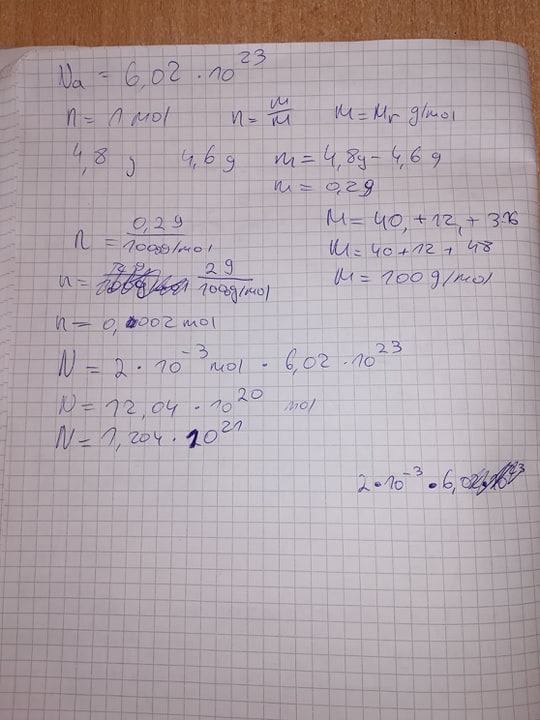 Na = 6,02 · 10^23
n = 1 mol n = m/M M = Mr g/mol
4,8 g 4,6 g m = 4,8g - 4,6 g
m = 0,2g
n = 0,2g/100g/mol M = 40, + 12, + 3·16
M = 40 + 12 + 48
n = 2g/1000g/mol M = 100 g/mol
n = 0,002 mol
N = 2 · 10^-3 mol · 6,02 · 10^23
N = 12,04 · 10^20 mol
N = 1,204 · 10^21
2 · 10^-3 · 6,02